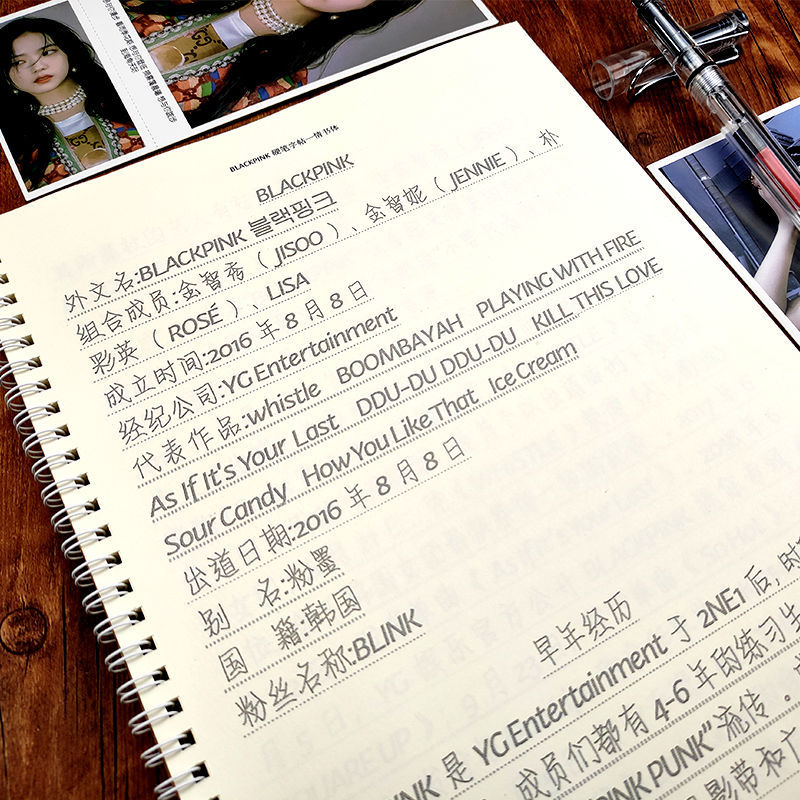 BLACKPINK 硬笔字帖—情书体
BLACKPINK
外文名:BLACKPINK 블랙핑크
组合成员:金智秀（JISOO）、金智妮（JENNIE）、朴
彩英（ROSÉ）、LISA
成立时间:2016 年 8 月 8 日
经纪公司:YG Entertainment
代表作品:whistle BOOMBAYAH PLAYING WITH FIRE
As If It's Your Last DDU-DU DDU-DU KILL THIS LOVE
Sour Candy How You Like That Ice Cream
出道日期:2016 年 8 月 8 日
别 名:粉墨
国 籍:韩国
粉丝名称:BLINK
早年经历
是 YG Entertainment 于 2NE1 后, 时
成员们都有 4-6 年的练习生
PINK PUNK" 流传。
影带和广